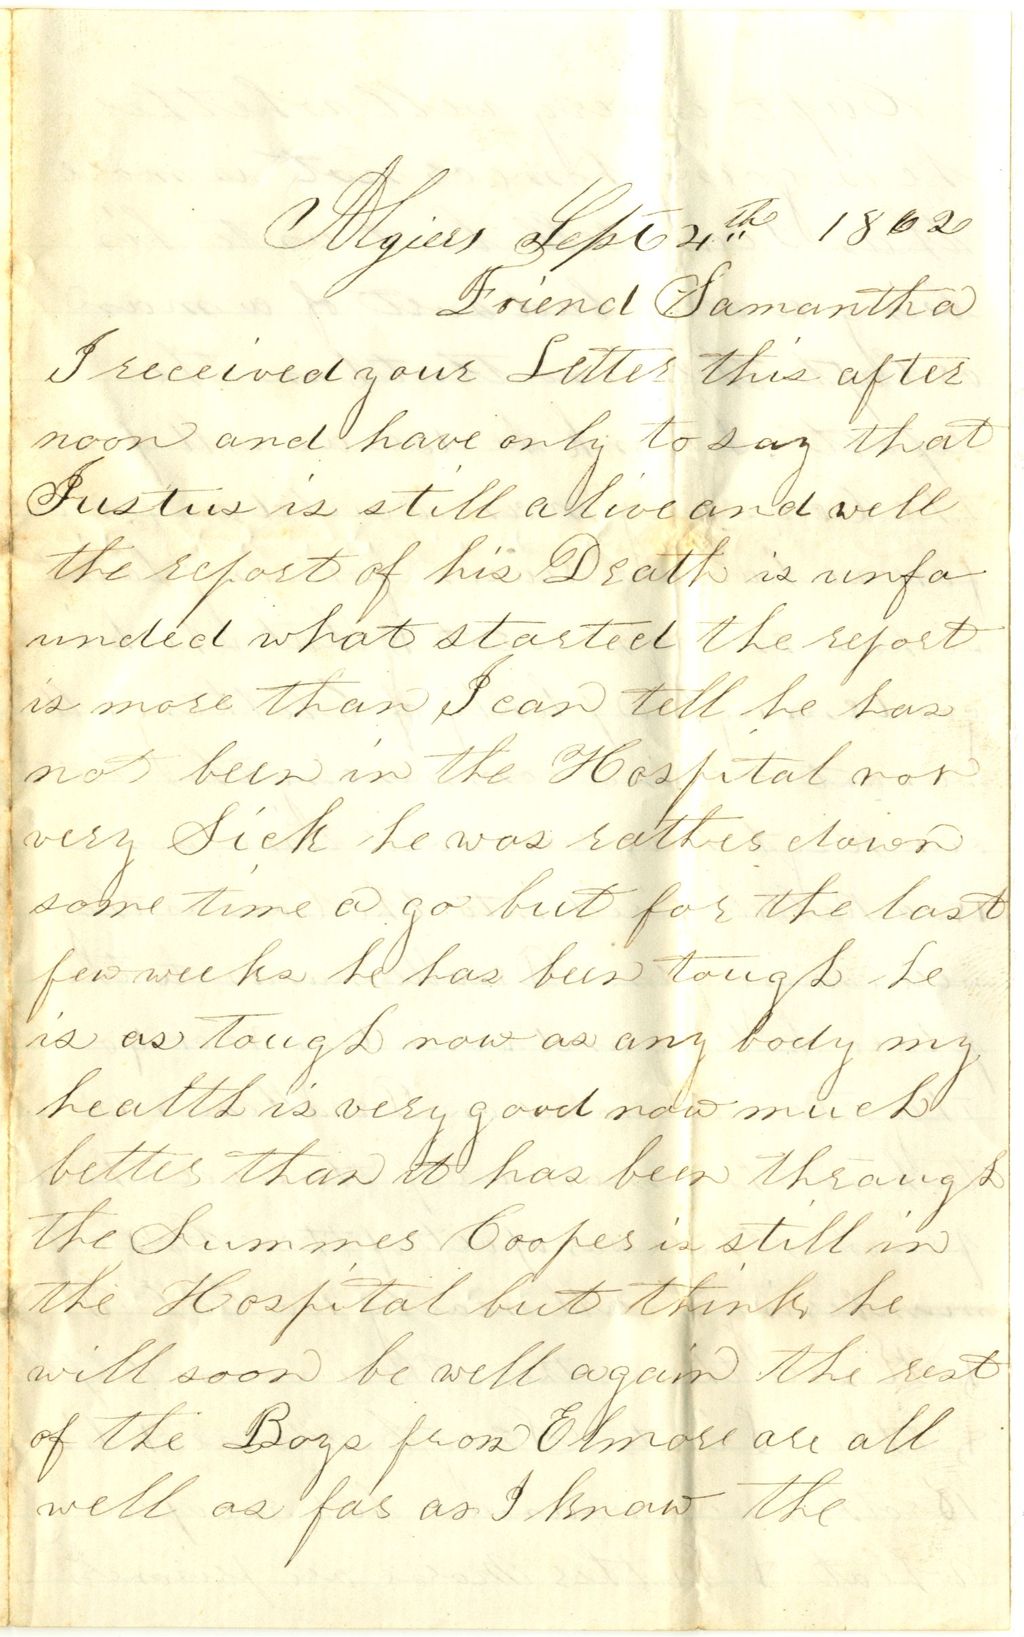 Algiers Sept 4th 1862
Friend Samantha
I received your Letter this after
noon and have only to say that
Justus is still a live and well
the report of his Death is unfo
unded what started the report
is more than I can tell he has
not been in the Hospital nor
very Sick he was rather down
some time a go but for the last
few weeks he has been tough he
is as tough now as any body my
health is very good now much
better than it has been through
the Summer Cooper is still in
the Hospital but think he
will soon be well again the rest
of the Boys from Elmore are all
well as far as I know the